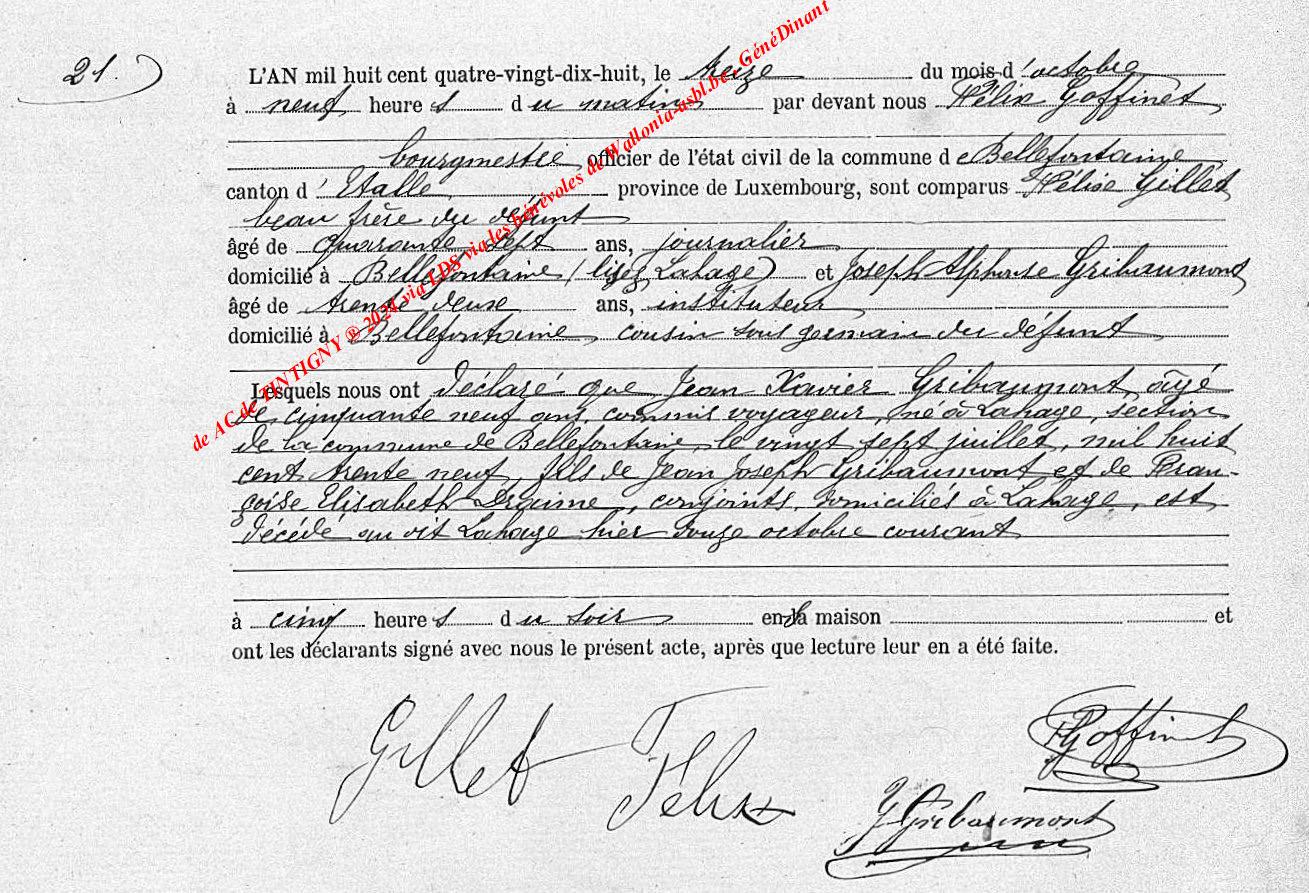 21.
L'AN mil huit cent quatre-vingt-dix-huit, le treize du mois d'octobre
à neuf heures du matin par devant nous Félix Goffinet
bourgmestre, officier de l'état civil de la commune de Bellefontaine
canton d'Etalle province de Luxembourg, sont comparus Félix Gillet
beau frère du défunt
âgé de quarante sept ans, journalier
domicilié à Bellefontaine (lisez Lahage) et Joseph Alphonse Gribaumont
âgé de trente deux ans, instituteur
domicilié à Bellefontaine, cousin sous germain du défunt
Lesquels nous ont déclaré que Jean Xavier Gribaumont, âgé
de cinquante neuf ans, commis voyageur, né à Lahage, section
de la commune de Bellefontaine, le vingt sept juillet, mil huit
cent trente neuf, fils de Jean Joseph Gribaumont et de Fran-
çoise Elisabeth conjoints, domiciliés à Lahage, est
décédé au dit Lahage hier douze octobre courant
à cinq heures du soir en sa maison et
ont les déclarants signé avec nous le présent acte, après que lecture leur en a été faite.
Gillet Félix
FGoffinet
J Gribaumont
de AC de TINTIGNY ® 2024 via LDS via les bénévoles de Wallonia-asbl.be - GénéDinant